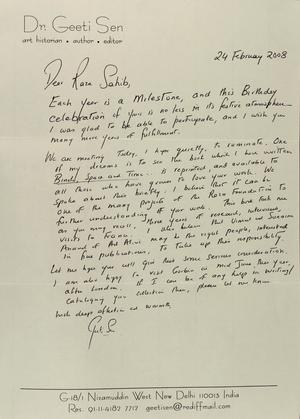 Dr. Geeti Sen
art historian • author • editor
24 February 2008
Dear Raza Sahib,
Each year is a Milestone, and this Birthday
celebration of yours is no less in its festive atmosphere.
I was glad to be able to participate, and I wish you
many more years of fulfilment.
We are meeting today, I hope quietly, to ruminate. One
of my dreams is to see the book which I have written
Bindu, Space and Time is reprinted, and available to
all those who have grown to love your work. We
spoke about this briefly; I believe that it can be
one of the many projects of the Raza Foundation to
further understanding of your work. This book took me
as you may recall, three years of research, interviews,
visits to France. I also believe that
Anand of Art Alive may be the right people, interested
in fine publications, to take up this responsibility.
Let me hope you will give this some serious consideration.
I am also hoping to visit Gorbio in mid June this year,
after London. If I can be of any help in writing/
cataloguing your collection then, please let me know
With deep affection and warmth,
Geeti Sen
G-18/1 Nizamuddin West New Delhi 110013 India
Res. 91-11-4182 7717 geetisen@rediffmail.com